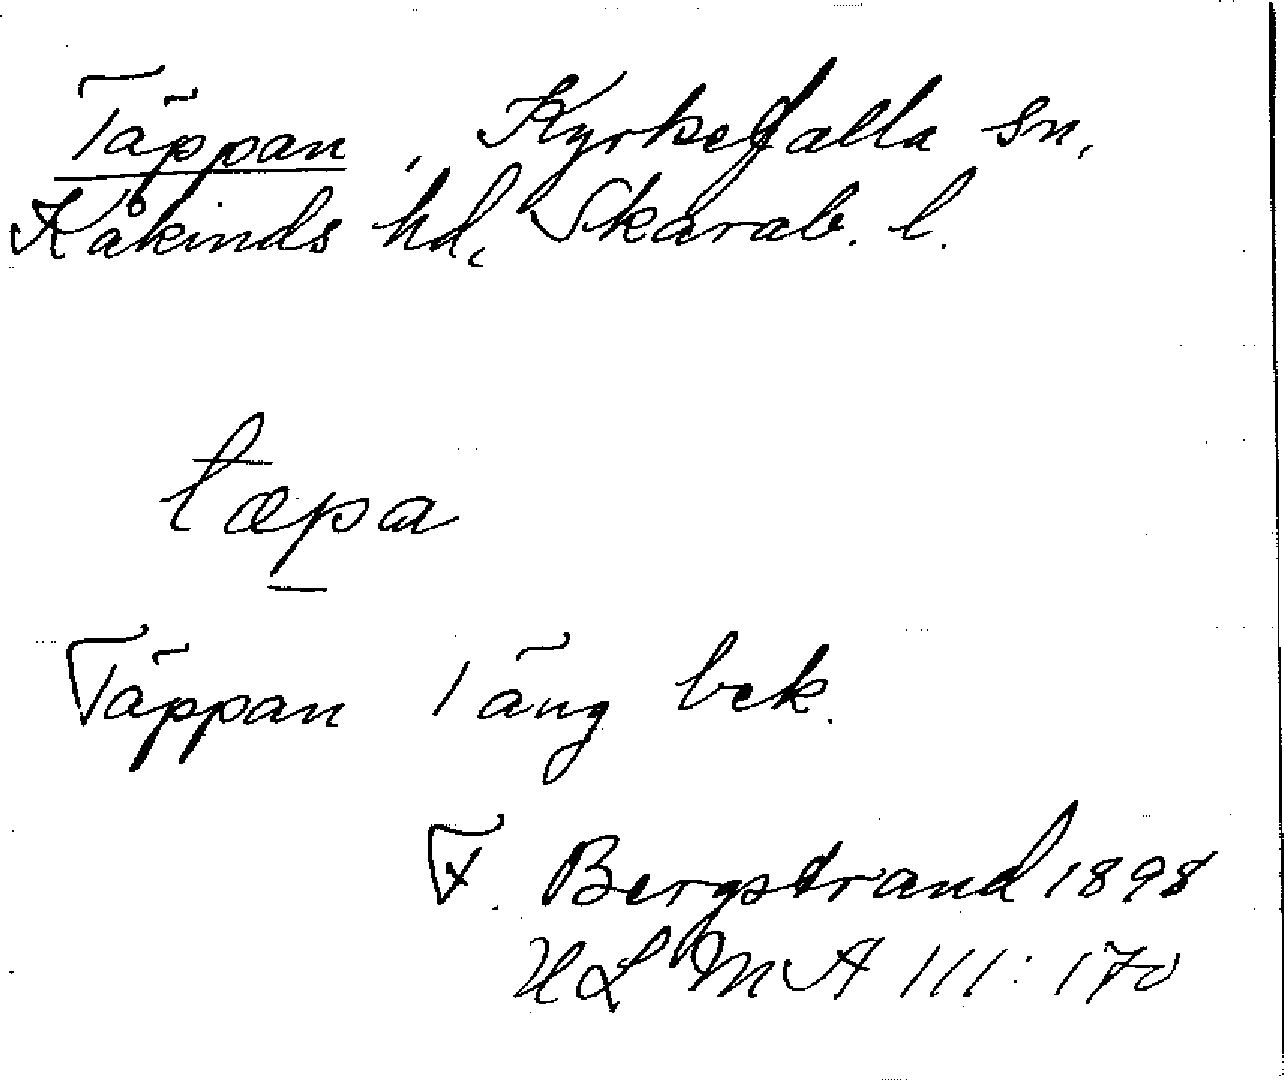 Täppan, Kyrkefalla sn,
Kåkinds hd, Skarab. l.
tæpa
Täppan 1 äng bek.
F. Bergstrand 1898
ULMA 111:170